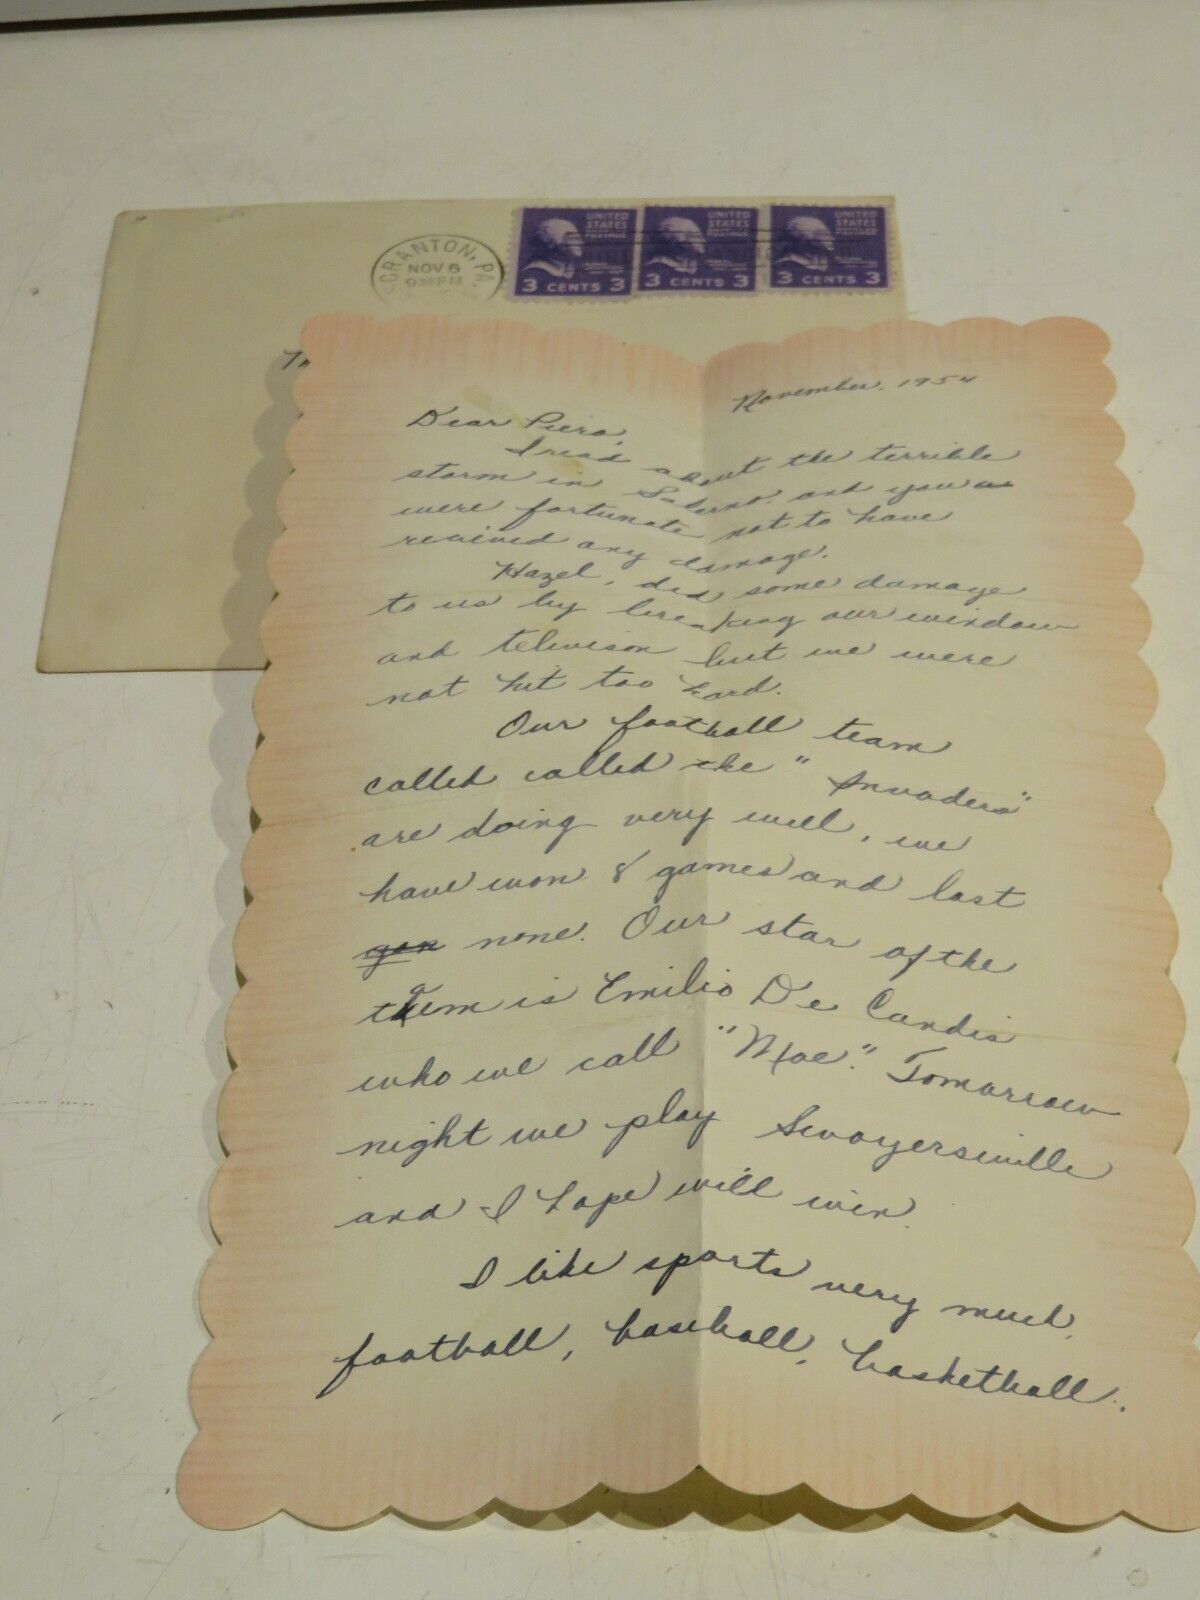 SCRANTON, PA.
NOV 6
9 30 PM
UNITED
STATES
POSTAGE
3 CENTS 3
UNITED
STATES
POSTAGE
3 CENTS 3
UNITED
STATES
POSTAGE
3 CENTS 3
November, 1954
Dear Piero,
I read about the terrible
storm in Salerno. and you
were fortunate not to have
recieved any damage.
Hazel, did some damage
to us by breaking our window
and televison but we were
not hit too hard.
Our football team
called called the "Invaders"
are doing very well, we
have won 8 games and lost
none. Our star of the
team is Emilio De Candis
who we call "Moe". Tomorrow
night we play Swoyersville
and I hope will win.
I like sports very much,
football, baseball, basketball.